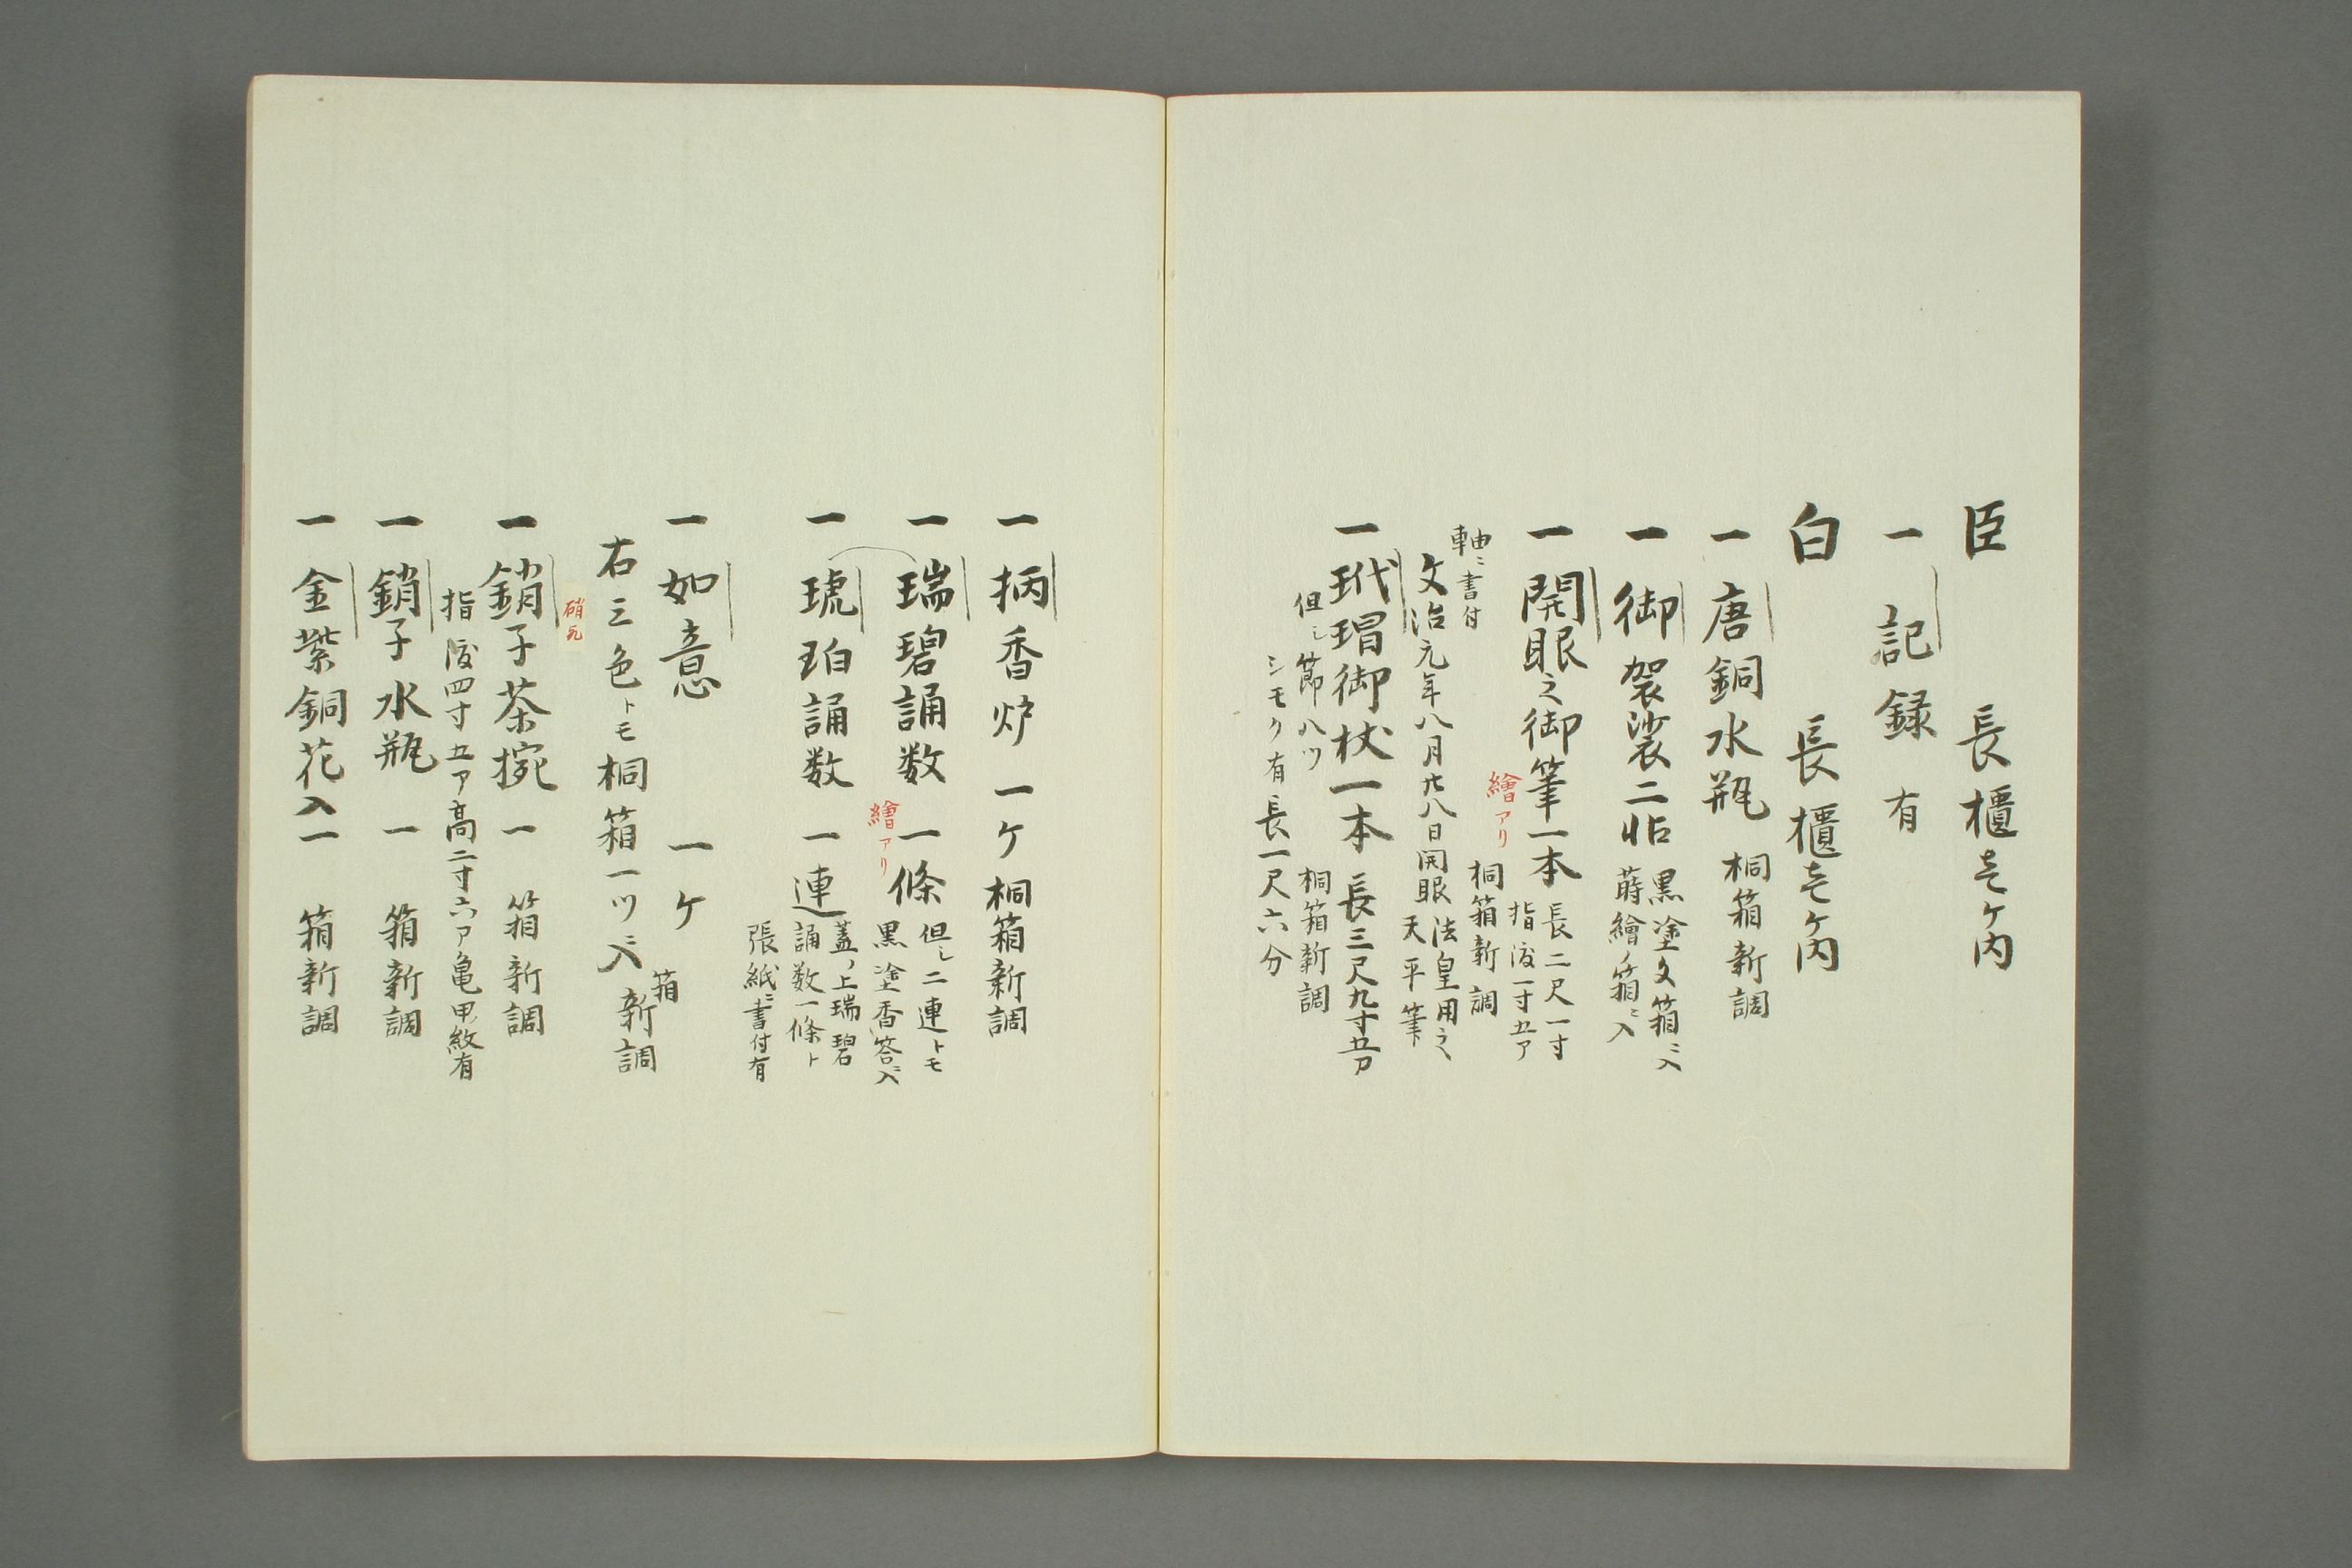 臣　長櫃壱ケ内
一　記録　有
白　長櫃壱ケ内
一　唐銅水瓶　桐箱新調
一　御袈裟二帖　黒塗文箱ニ入
蒔繪ノ箱ニ入
一　開眼之御筆一本　長二尺一寸
指渡一寸五ア
繪アリ
桐箱新調
軸ニ書付
文治元年八月廿八日開眼　法皇用之
天平筆
一　玳瑁御杖一本　長三尺九寸五分
桐箱新調
但シ節八ツ
シモク有長一尺六分
一　柄香炉　一ケ　桐箱新調
一　瑞碧誦数　一條　但シ二連トモ
黒塗香答ニ入
繪アリ
一　琥珀誦数　一連　蓋ノ上瑞碧
誦数一條ト
張紙ニ書付有
一　如意　一ケ
右三色トモ桐箱一ツニ入　箱
新調
硝瓦
一　銷子茶捥　一　箱新調
指渡四寸五ア高二寸六ア亀甲紋有
一　銷子水瓶　一　箱新調
一　金紫銅花入　一　箱新調